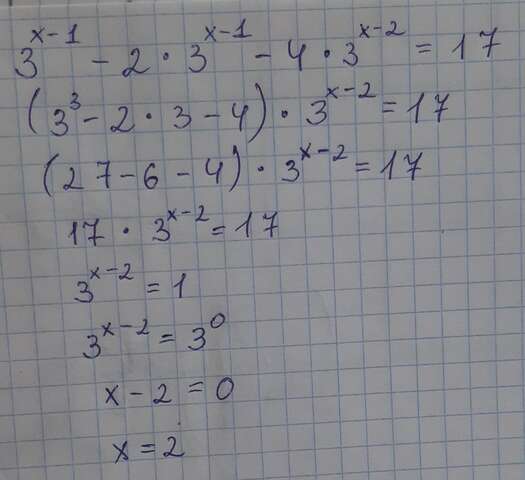 3^{x-1} - 2 · 3^{x-1} - 4 · 3^{x-2} = 17
(3^3 - 2 · 3 - 4) · 3^{x-2} = 17
(27 - 6 - 4) · 3^{x-2} = 17
17 · 3^{x-2} = 17
3^{x-2} = 1
3^{x-2} = 3^0
x - 2 = 0
x = 2